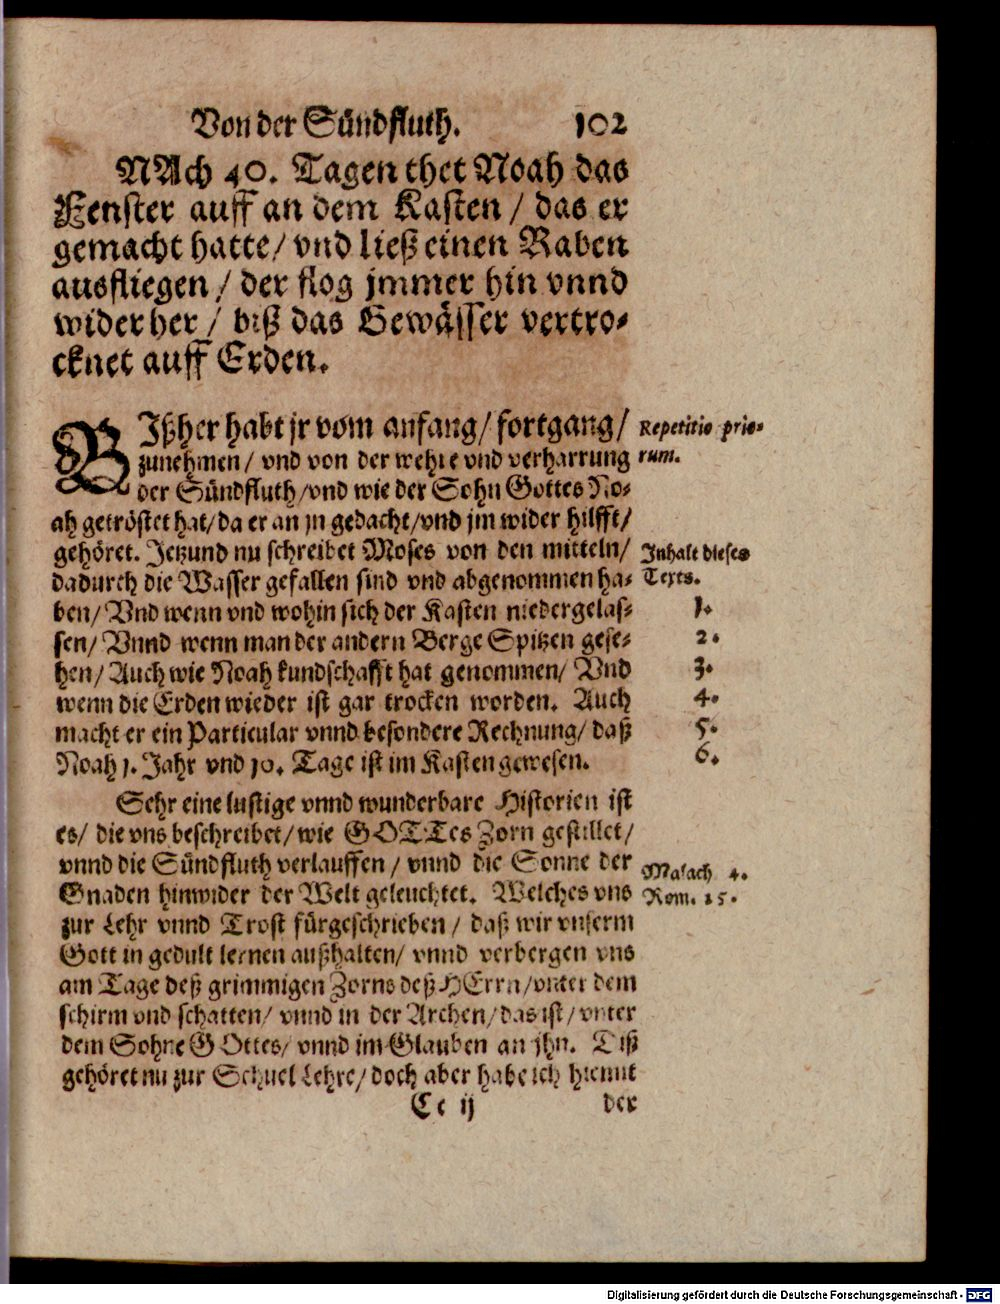 Von der Sündfluth. 102
NAch 40. Tagen thet Noah das
Fenster auff an dem Kasten / das er
gemacht hatte / vnd ließ einen Raben
ausfliegen / der flog jmmer hin vnnd
wider her / biß das Gewässer vertro-
cknet auff Erden.
BIßher habt jr vom anfang / fortgang /
Repetitio prio-
zunehmen / vnd von der wehre vnd verharrung
rum.
der Sündfluth / vnd wie der Sohn Gottes No-
ah getröstet hat / da er an jn gedacht / vnd jm wider hilfft /
gehöret. Jetzund nu schreibet Moses von den mitteln /
Inhalt dieses
dadurch die Wasser gefallen sind vnd abgenommen ha-
Texts.
ben / Vnd wenn vnd wohin sich der Kasten niedergelas-
1.
sen / Vnnd wenn man der andern Berge Spitzen gese-
2.
hen / Auch wie Noah kundschafft hat genommen / Vnd
3.
wenn die Erden wieder ist gar trocken worden. Auch
4.
macht er ein Particular vnnd besondere Rechnung / daß
5.
Noah 1. Jahr vnd 10. Tage ist im Kasten gewesen.
6.
Sehr eine lustige vnnd wunderbare Historien ist
es / die vns beschreibet / wie GOTTes Zorn gestillet /
vnnd die Sündfluth verlauffen / vnnd die Sonne der
Malach 4.
Gnaden hinwider der Welt geleuchtet. Welches vns
Rom. 15.
zur Lehr vnnd Trost fürgeschrieben / daß wir vnserm
Gott in gedult lernen außhalten / vnnd verbergen vns
am Tage deß grimmigen Zorns deß HErrn / vnter dem
schirm vnd schatten / vnnd in der Archen / das ist / vnter
dem Sohne GOttes / vnnd im Glauben an jhn. Diß
gehöret nu zur Schuel Lehre / doch aber habe ich hiemit
Cc ij der
Digitalisierung gefördert durch die Deutsche Forschungsgemeinschaft - DFG